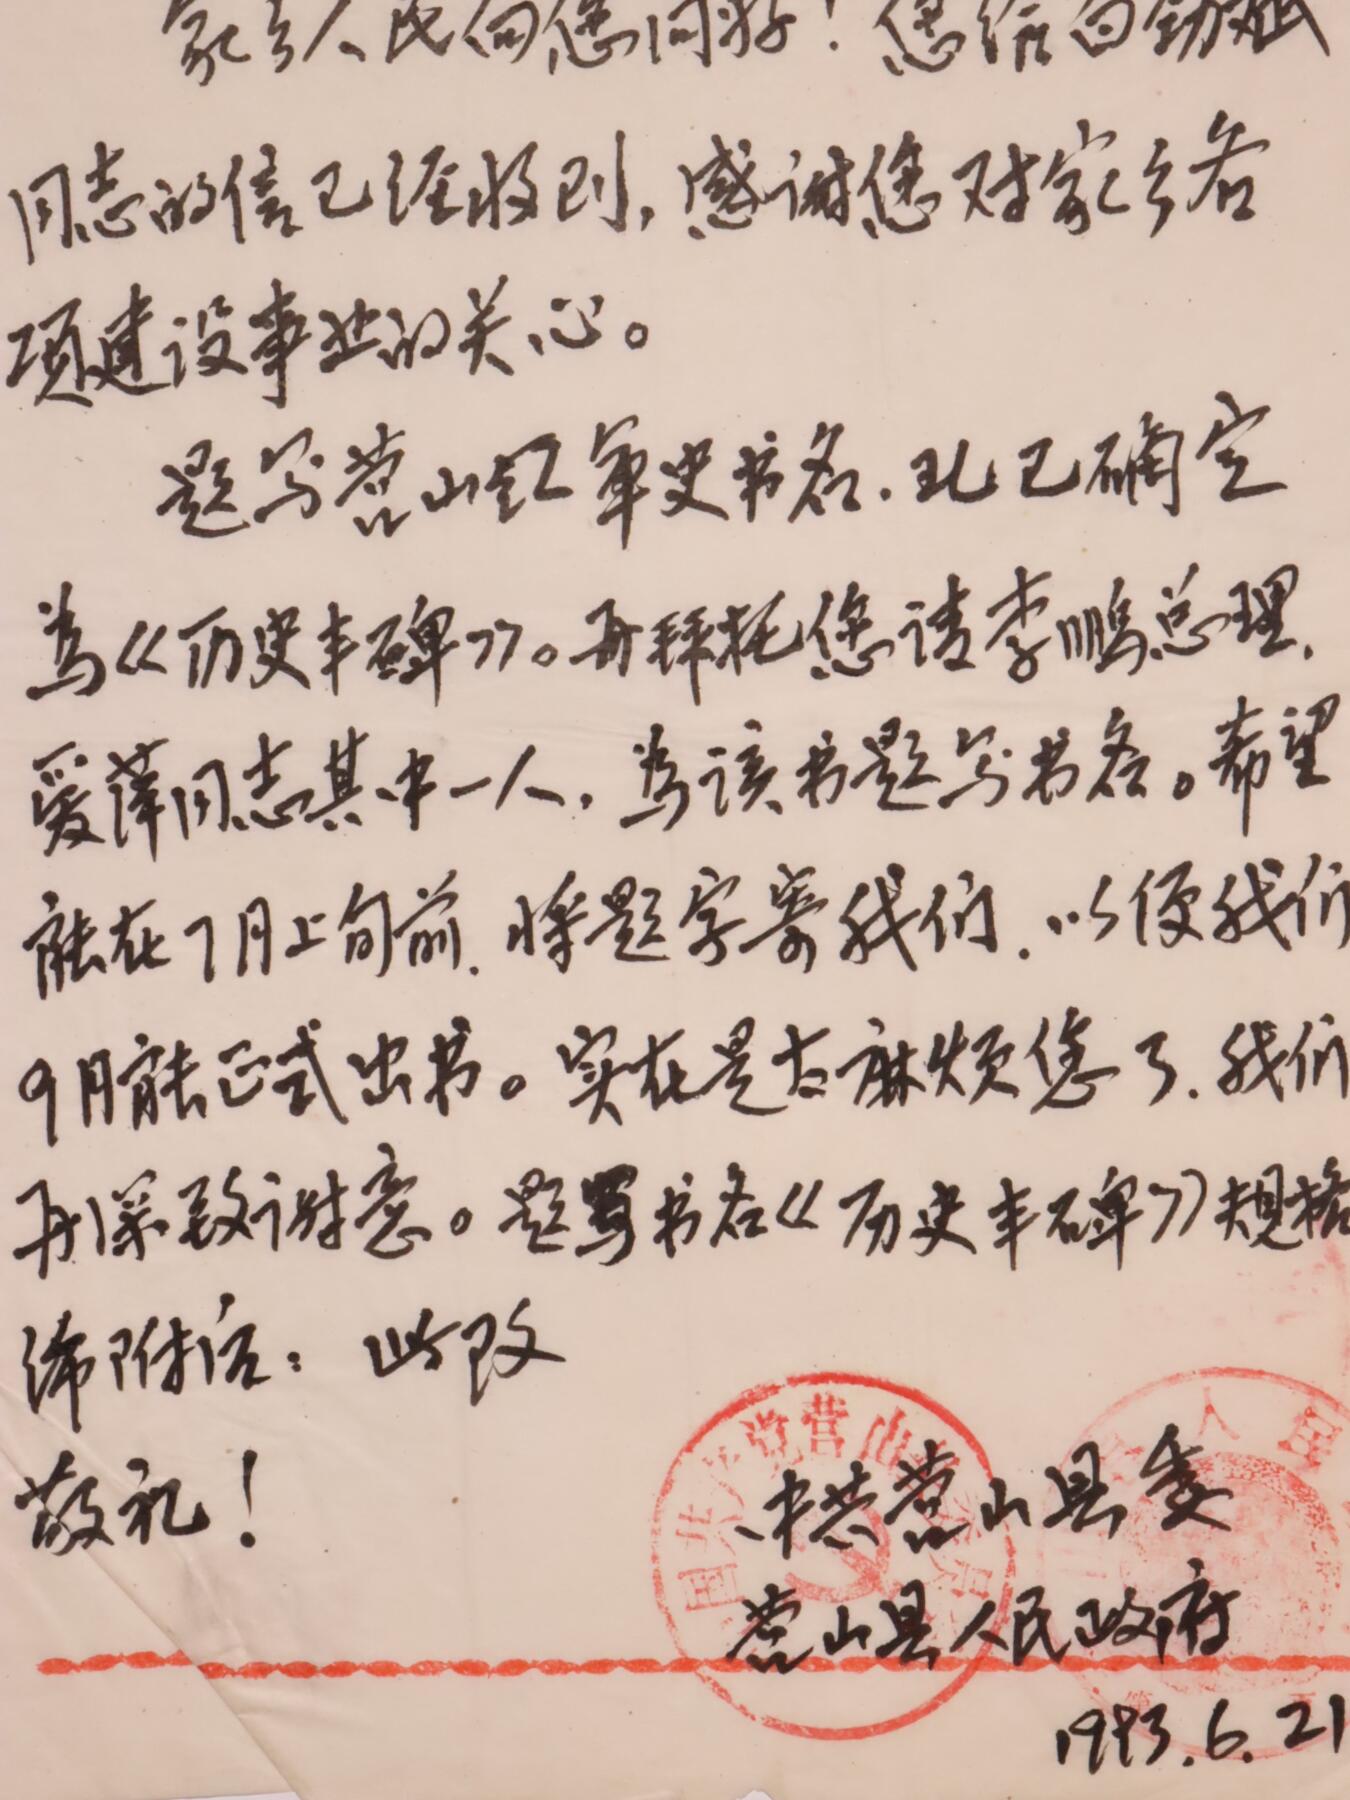 家乡人民向您问好！您给白劲斌
同志的信已经收到，感谢您对家乡各
项建设事业的关心。
题写营山红军史书名，现已确定
为《历史丰碑》。再拜托您请李鹏总理、
爱萍同志其中一人，为该书题写书名。希望
能在7月上旬前，将题字寄我们，以便我们
9月能正式出书。实在是太麻烦您了，我们
再深致谢意。题写书名《历史丰碑》规格
稀附后：此致
敬礼！
中共营山县委
营山县人民政府
1993.6.21